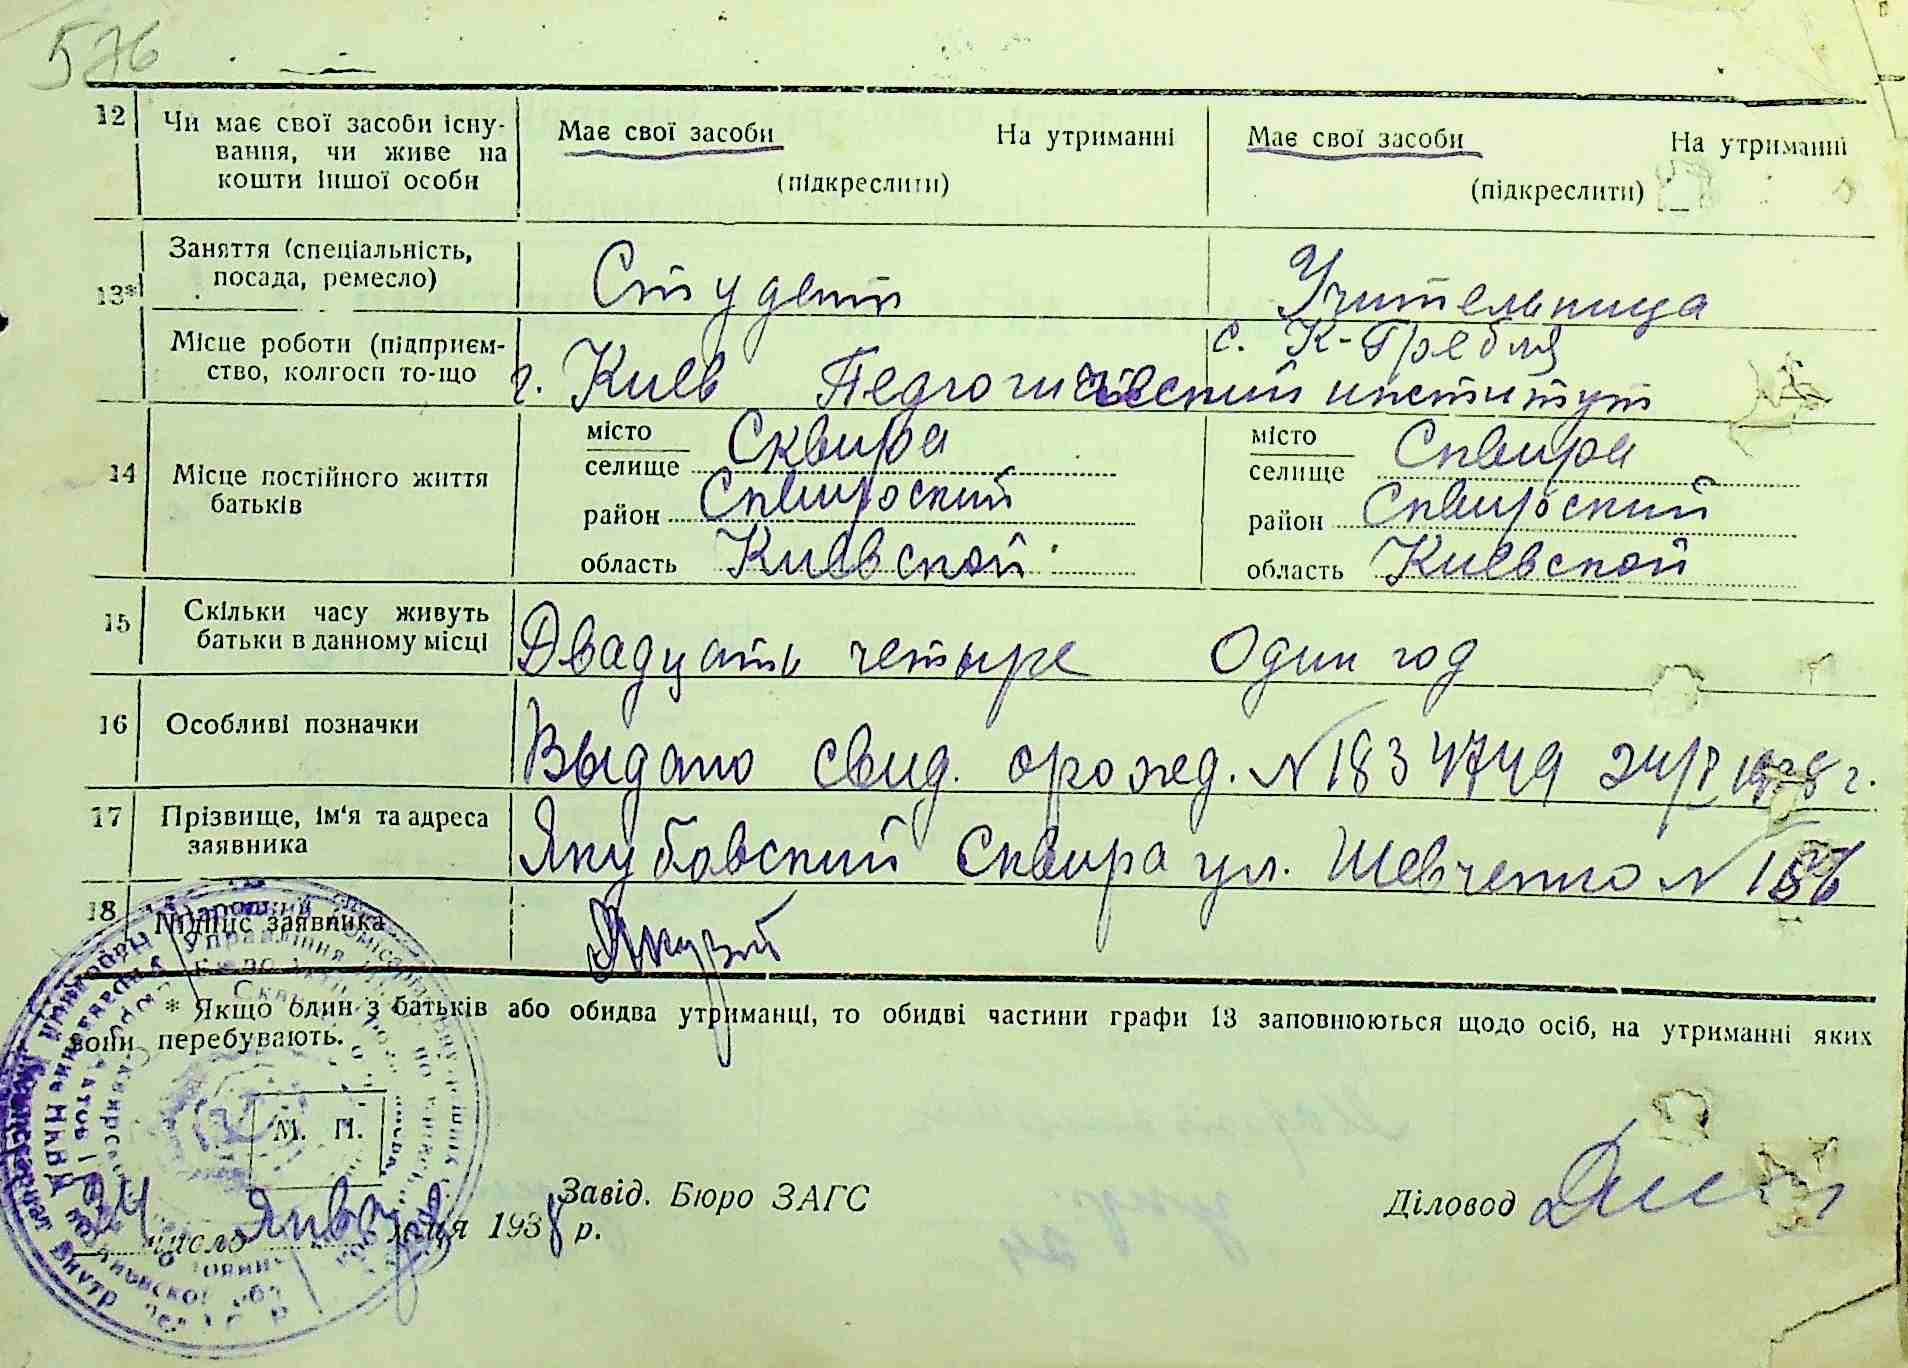 576
12 Чи має свої засоби існу- Має свої засоби На утриманні Має свої засоби На утриманні
вання, чи живе на
кошти іншої особи (підкреслити) (підкреслити)
13* Заняття (спеціальність, Студент Учительница
посада, ремесло)
с. К-Гребля
Місце роботи (підприєм- г. Киев Педгогический институт
ство, колгосп то-що
14 Місце постійного життя місто Сквира місто Сквира
батьків селище селище
район Сквирский район Сквирский
область Киевской область Киевской
15 Скільки часу живуть Двадцать четыре Один год
батьки в данному місці
16 Особливі позначки Выдано свид. орожд. N 1834749 24/I 1938 г.
17 Прізвище, ім'я та адреса Якубовский Сквира ул. Шевченко N
заявника
18 Підпис заявника
* Якщо один з батьків або обидва утриманці, то обидві частини графи 13 заповнюються щодо осіб, на утриманні яких
вони перебувають.
М. П.
Завід. Бюро ЗАГС Діловод
24 число Января місяця 1938 р.